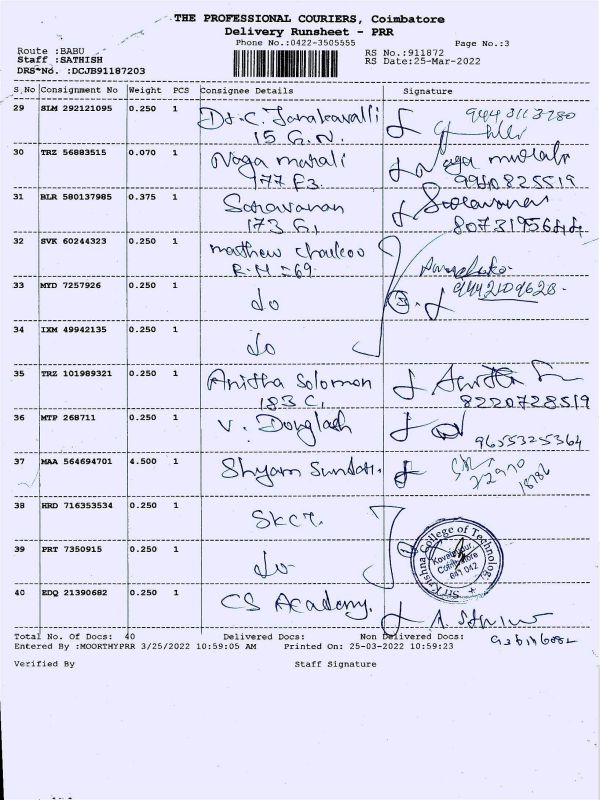 THE PROFESSIONAL COURIERS, Coimbatore
Delivery Runsheet - PRR
Phone No.:0422-3505555
Page No.:3
Route :BABU
RS No.:911872
Staff :SATHISH
RS Date:25-Mar-2022
DRS No. :DCJB91187203
S.No Consignment No Weight PCS Consignee Details Signature
29 SLM 292121095 0.250 1 Dr. C.
15 G.N.
30 TRZ 56883515 0.070 1 Naga murali Naga murali
177 F3. 9940825519
31 BLR 580137985 0.375 1 Saravanan Saravanan
173 G1 8073195644
32 SVK 60244323 0.250 1 matthew
R.N=69.
33 MYD 7257926 0.250 1 do 3 9442109628
34 IXM 49942135 0.250 1 do
35 TRZ 101989321 0.250 1 Anitha Solomon
183 C, 8220728519
36 MTP 268711 0.250 1 V.
9655325364
37 MAA 564694701 4.500 1 Shyam Sundar.
22970
18786
38 HRD 716353534 0.250 1 SKCT.
39 PRT 7350915 0.250 1 do
Sri Krishna College of Technology
Kovaipudur
Coimbatore
641 042
40 EDQ 21390682 0.250 1 CS Academy.
Total No. Of Docs: 40 Delivered Docs: Non Delivered Docs:
Entered By :MOORTHYPRR 3/25/2022 10:59:05 AM Printed On: 25-03-2022 10:59:23
Verified By Staff Signature